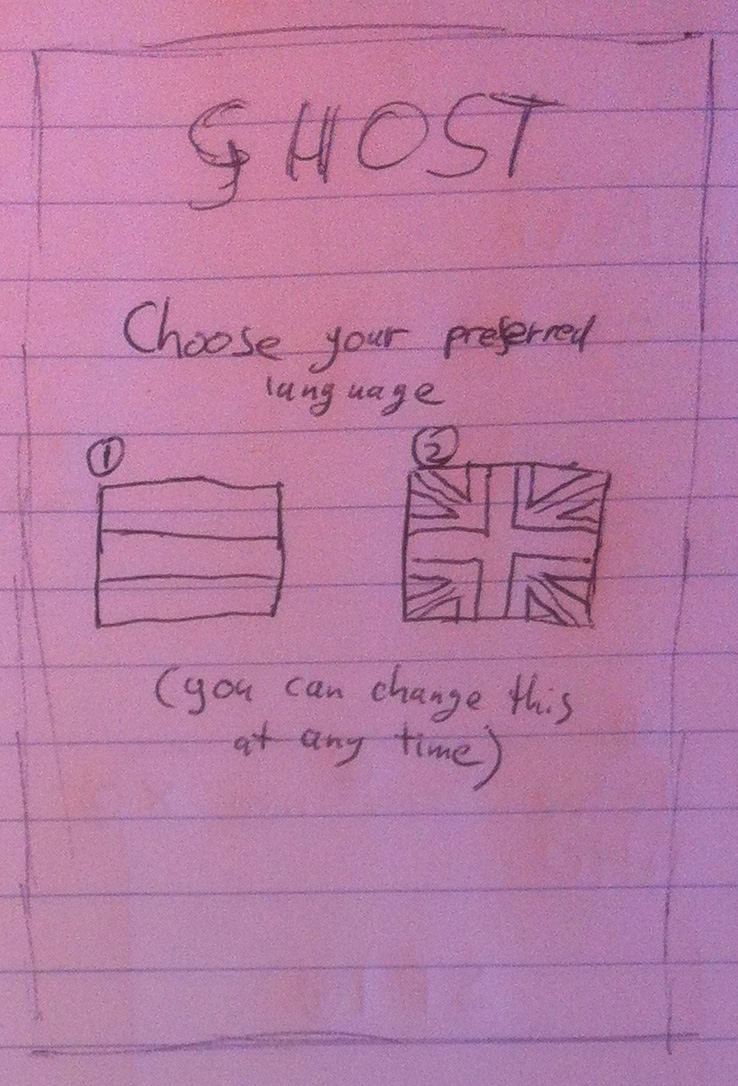 GHOST
Choose your preferred
language
① ②
(you can change this
at any time)